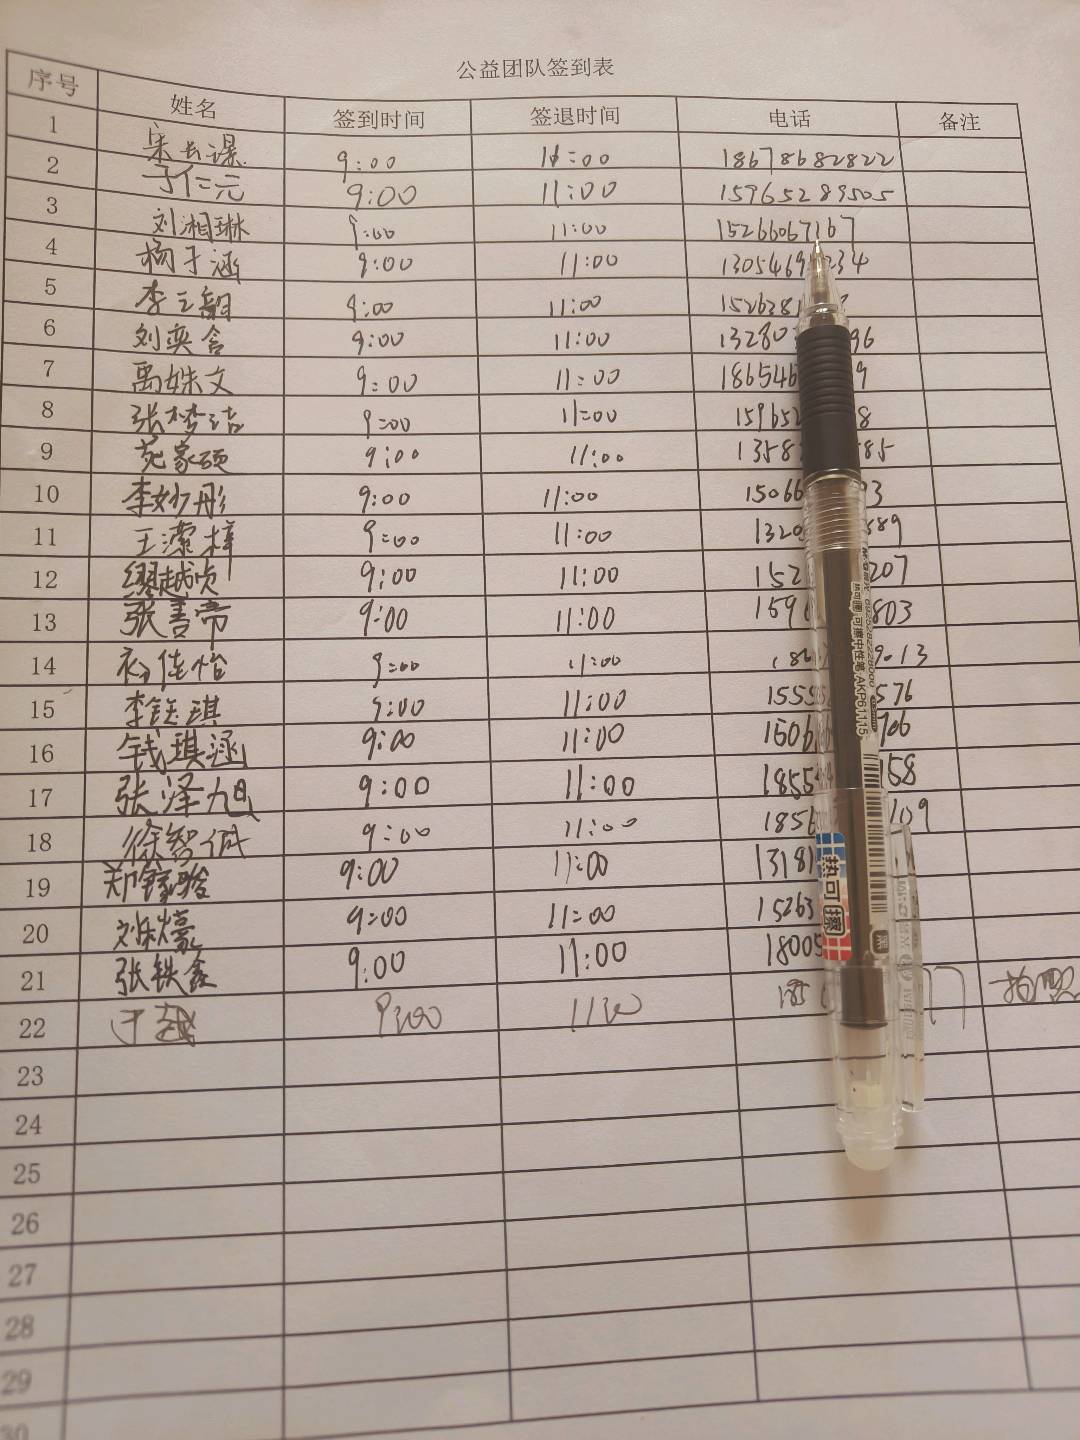 公益团队签到表
序号 姓名 签到时间 签退时间 电话 备注
1 9:00 11:00 18678682822
2 于仁元 9:00 11:00 15965289505
3 刘湘琳 9:00 11:00 15266067167
4 杨于涵 9:00 11:00 130546 34
5 李 韵 9:00 11:00 1526381
6 刘奕含 9:00 11:00 13280 96
7 禹姝文 9:00 11:00 18654 9
8 张梦洁 9:00 11:00 15965 8
9 苑家硕 9:00 11:00 1358 85
10 李妙彤 9:00 11:00 15066 93
11 王潆梓 9:00 11:00 1320 589
12 缪越贞 9:00 11:00 152 207
13 张善帝 9:00 11:00 159 803
14 初佳怡 9:00 11:00 186 9013
15 李钰琪 9:00 11:00 1555 576
16 钱琪涵 9:00 11:00 1506 706
17 张泽旭 9:00 11:00 1855 158
18 徐智诚 9:00 11:00 185 109
19 郑 骏 9:00 11:00 1318
20 刘秋 9:00 11:00 15263
21 张轶鑫 9:00 11:00 18005
22 于越 9:00 11:00 185 77 拍照
23
24
25
26
27
28
29
30
热可擦
黑
可擦中性笔 AKP61115